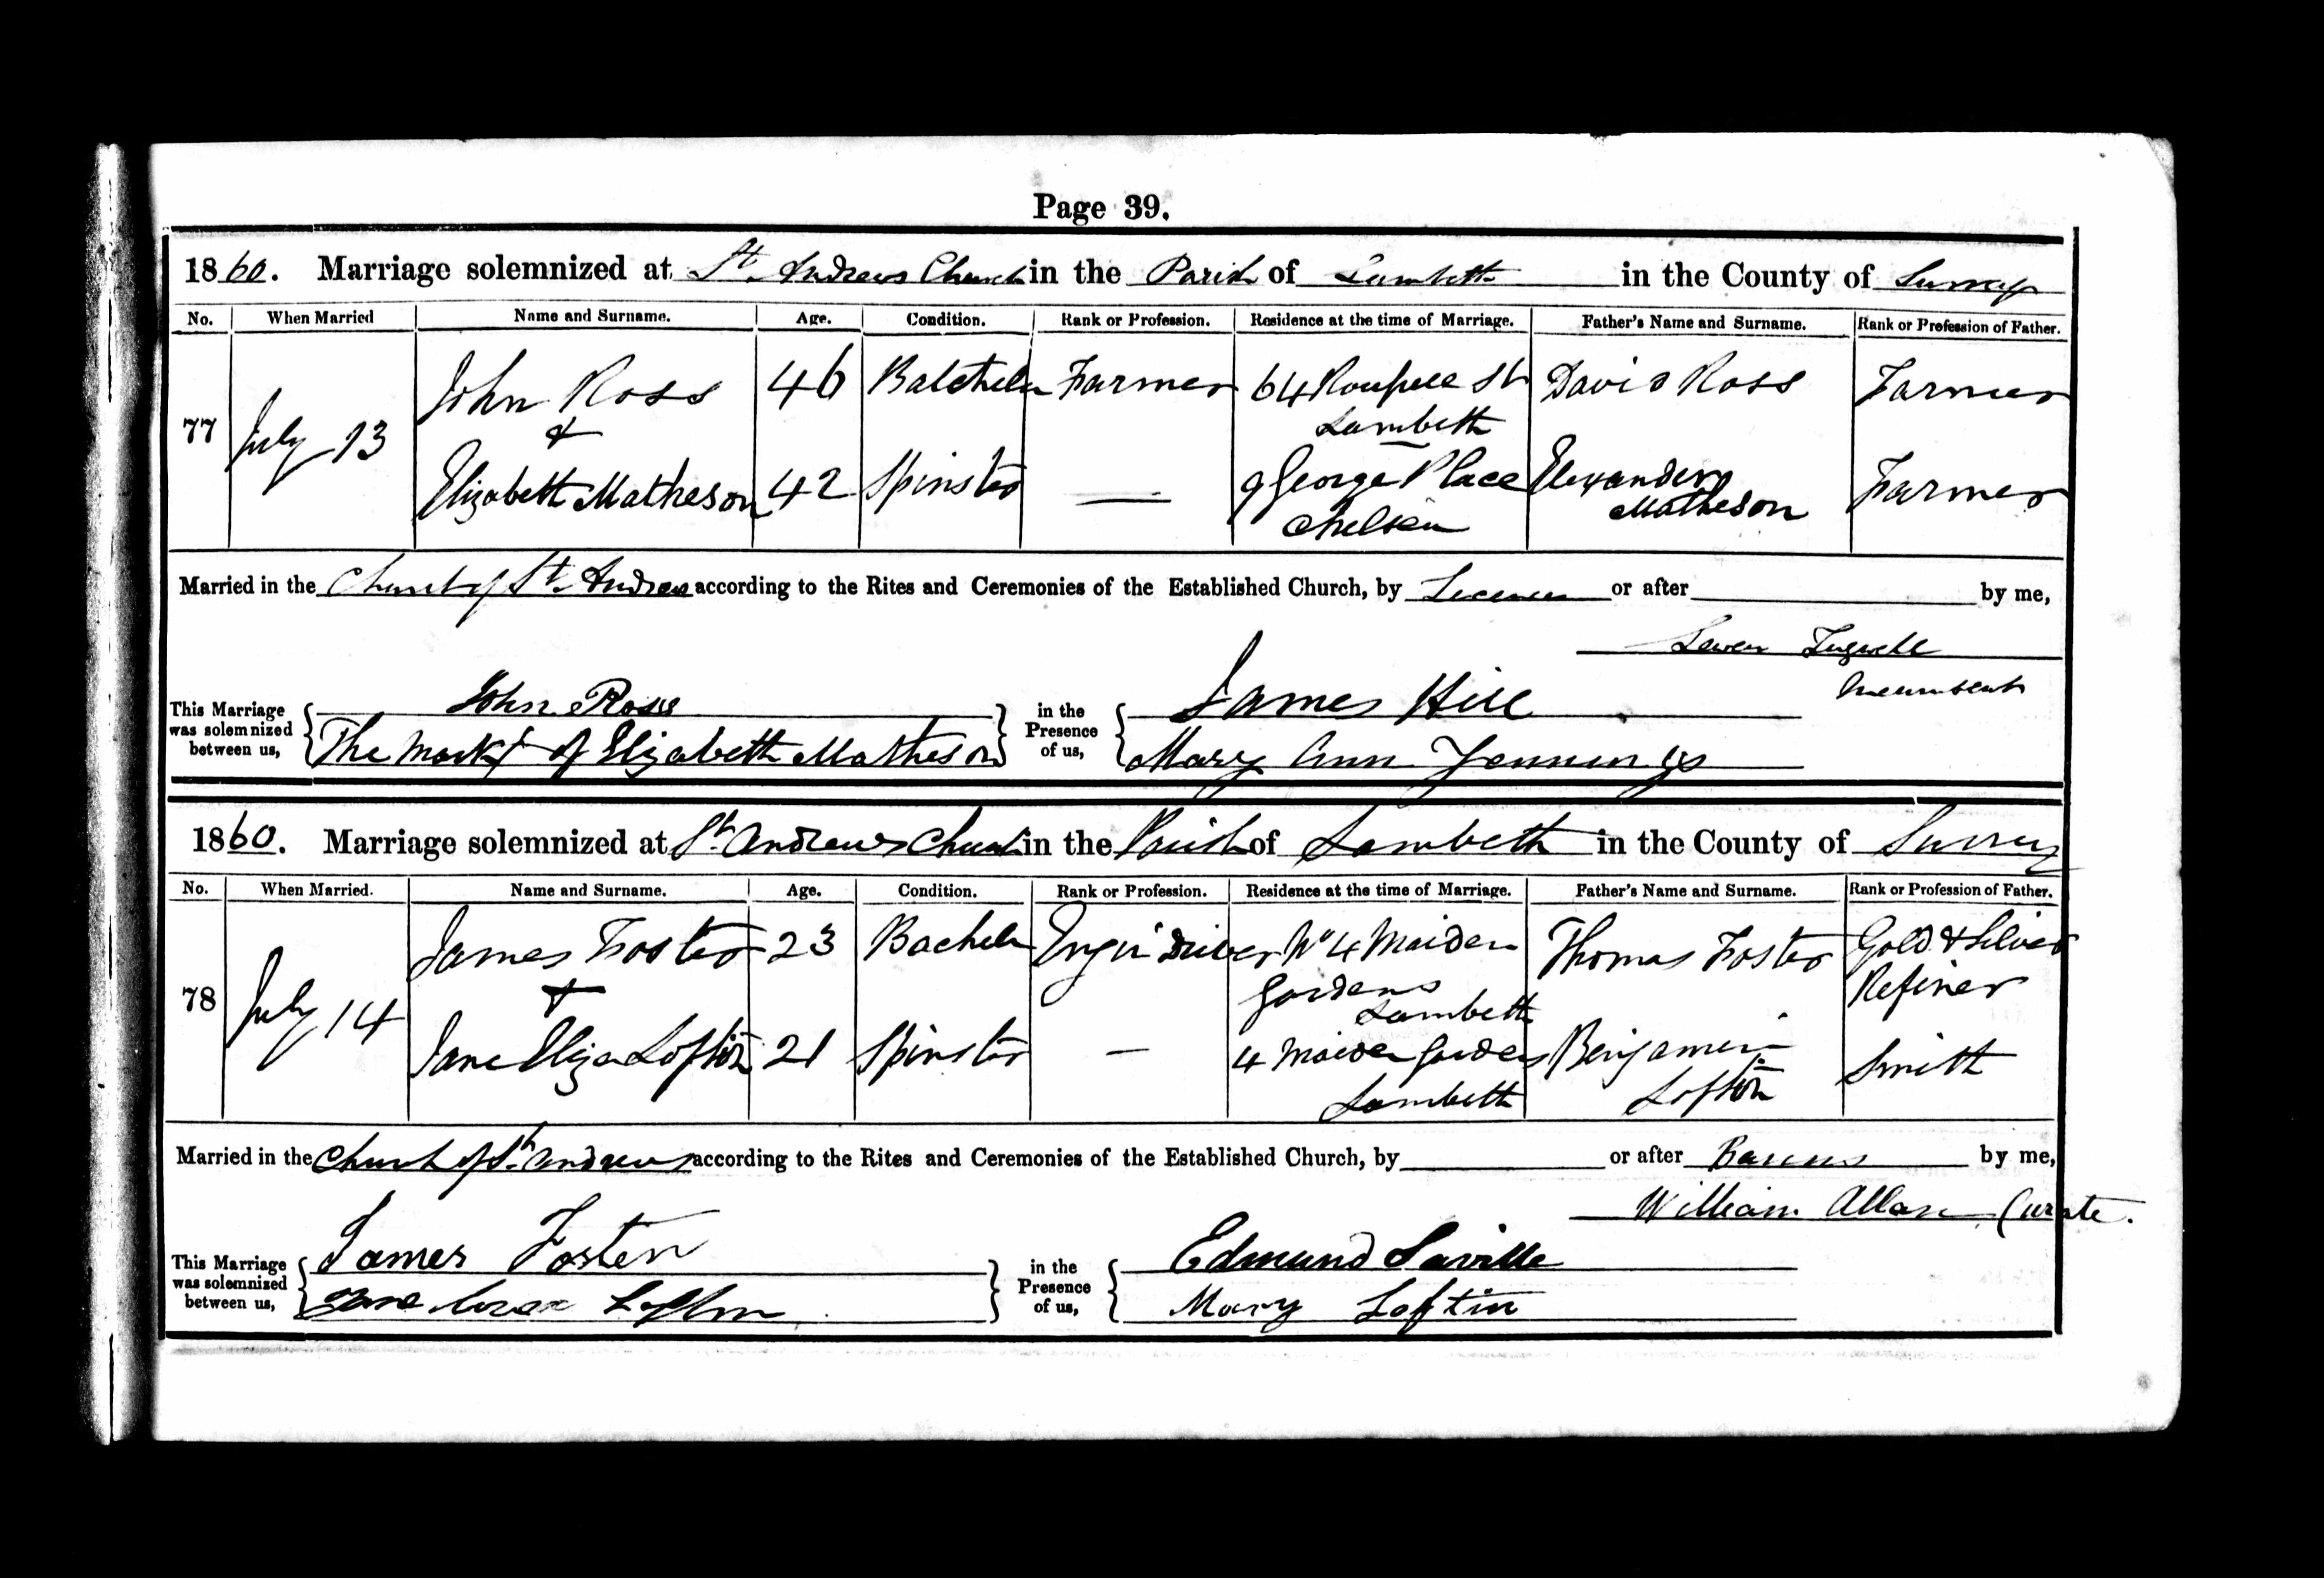 Page 39.
1860. Marriage solemnized at St. Andrews Church in the Parish of Lambeth in the County of Surrey
No. When Married Name and Surname. Age. Condition. Rank or Profession. Residence at the time of Marriage. Father's Name and Surname. Rank or Profession of Father.
77 July 13 John Ross 46 Batchelor Farmer 64 Roupell St Lambeth David Ross Farmer
&
Elizabeth Matheson 42 Spinster — 9 George Place Chelsea Alexander Matheson Farmer
Married in the Church of St. Andrew according to the Rites and Ceremonies of the Established Church, by Licence or after by me,
Tugwell
Incumbent
This Marriage was solemnized between us, John Ross in the Presence of us, James Hill
The Mark X of Elizabeth Matheson Mary Ann Jennings
1860. Marriage solemnized at St. Andrews Church in the Parish of Lambeth in the County of Surrey
No. When Married. Name and Surname. Age. Condition. Rank or Profession. Residence at the time of Marriage. Father's Name and Surname. Rank or Profession of Father.
78 July 14 James Foster 23 Bachelor Engin driver No 4 Maiden Gardens Lambeth Thomas Foster Gold & Silver Refiner
&
Jane Eliza Loftin 21 Spinster — 4 Maiden Gardens Lambeth Benjamin Loftin Smith
Married in the Church of St. Andrews according to the Rites and Ceremonies of the Established Church, by or after Banns by me,
William Allan Curate.
This Marriage was solemnized between us, James Foster in the Presence of us, Edmund Saville
Jane Loftin Mary Loftin